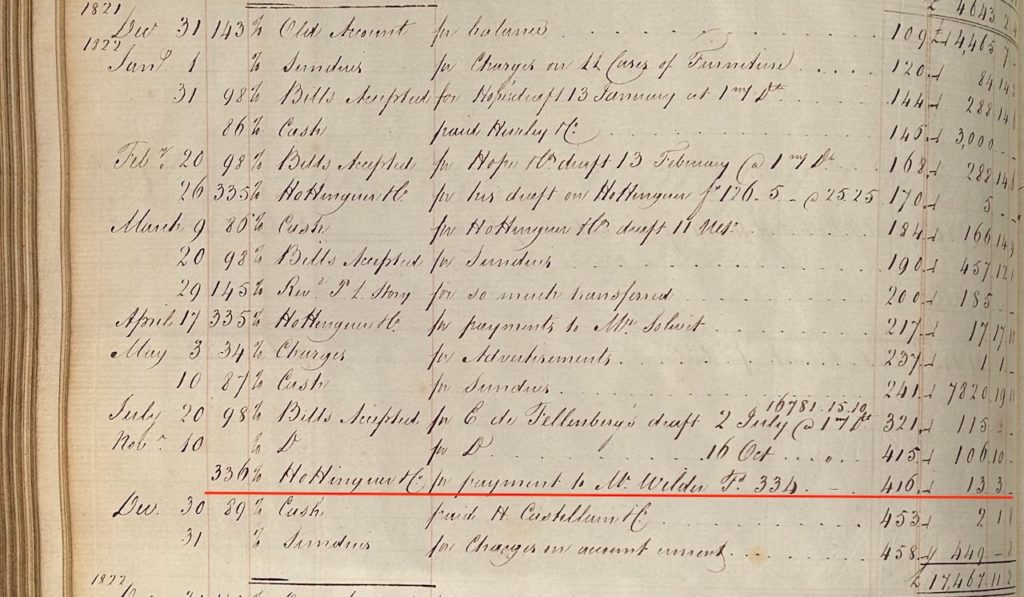 £ 4643 2
1821
Dec 31 143 % Old Account for balance 109 £ 4,465 7
1822
Jany 1 % Sundries for Charges on 22 Cases of Furniture 120 84 14
31 98 % Bills Accepted for Hope's draft 13 January at 1 m/Dt 144 288 14
86 % Cash paid Hurley & Co 146 3,000
Feby 20 98 % Bills Accepted for Hope & Co draft 13 February @ 1 m/Dt 168 288 14
26 335 % Hottinguer & Co for his draft on Hottinguer fr 126.5 @ 25.25 170 5
March 9 86 % Cash for Hottinguer & Co draft 11 Ulto 184 166 14
20 98 % Bills Accepted for Sundries 190 457 12
29 145 % Revd P L Story for so much transferred 200 185
April 17 335 % Hottinguer & Co for payments to Mr 217 17 17
May 3 34 % Charges for Advertisements 237 1 1
10 87 % Cash for Sundries 241 7820 19
16781.15.10
July 20 98 % Bills Accepted for E. de Fellenberg's draft 2 July @ 1 m/Dt 321 115
Novr 10 % Do for Do 16 Oct " 415 106 10
336 % Hottinguer & Co for payment to Mr Wilder Fs 334 416 13 3
Dec. 30 89 % Cash paid H Castellain & Co 453 2 1
31 % Sundries for Charges on account current 458 449
£ 17,467 11 2
1822